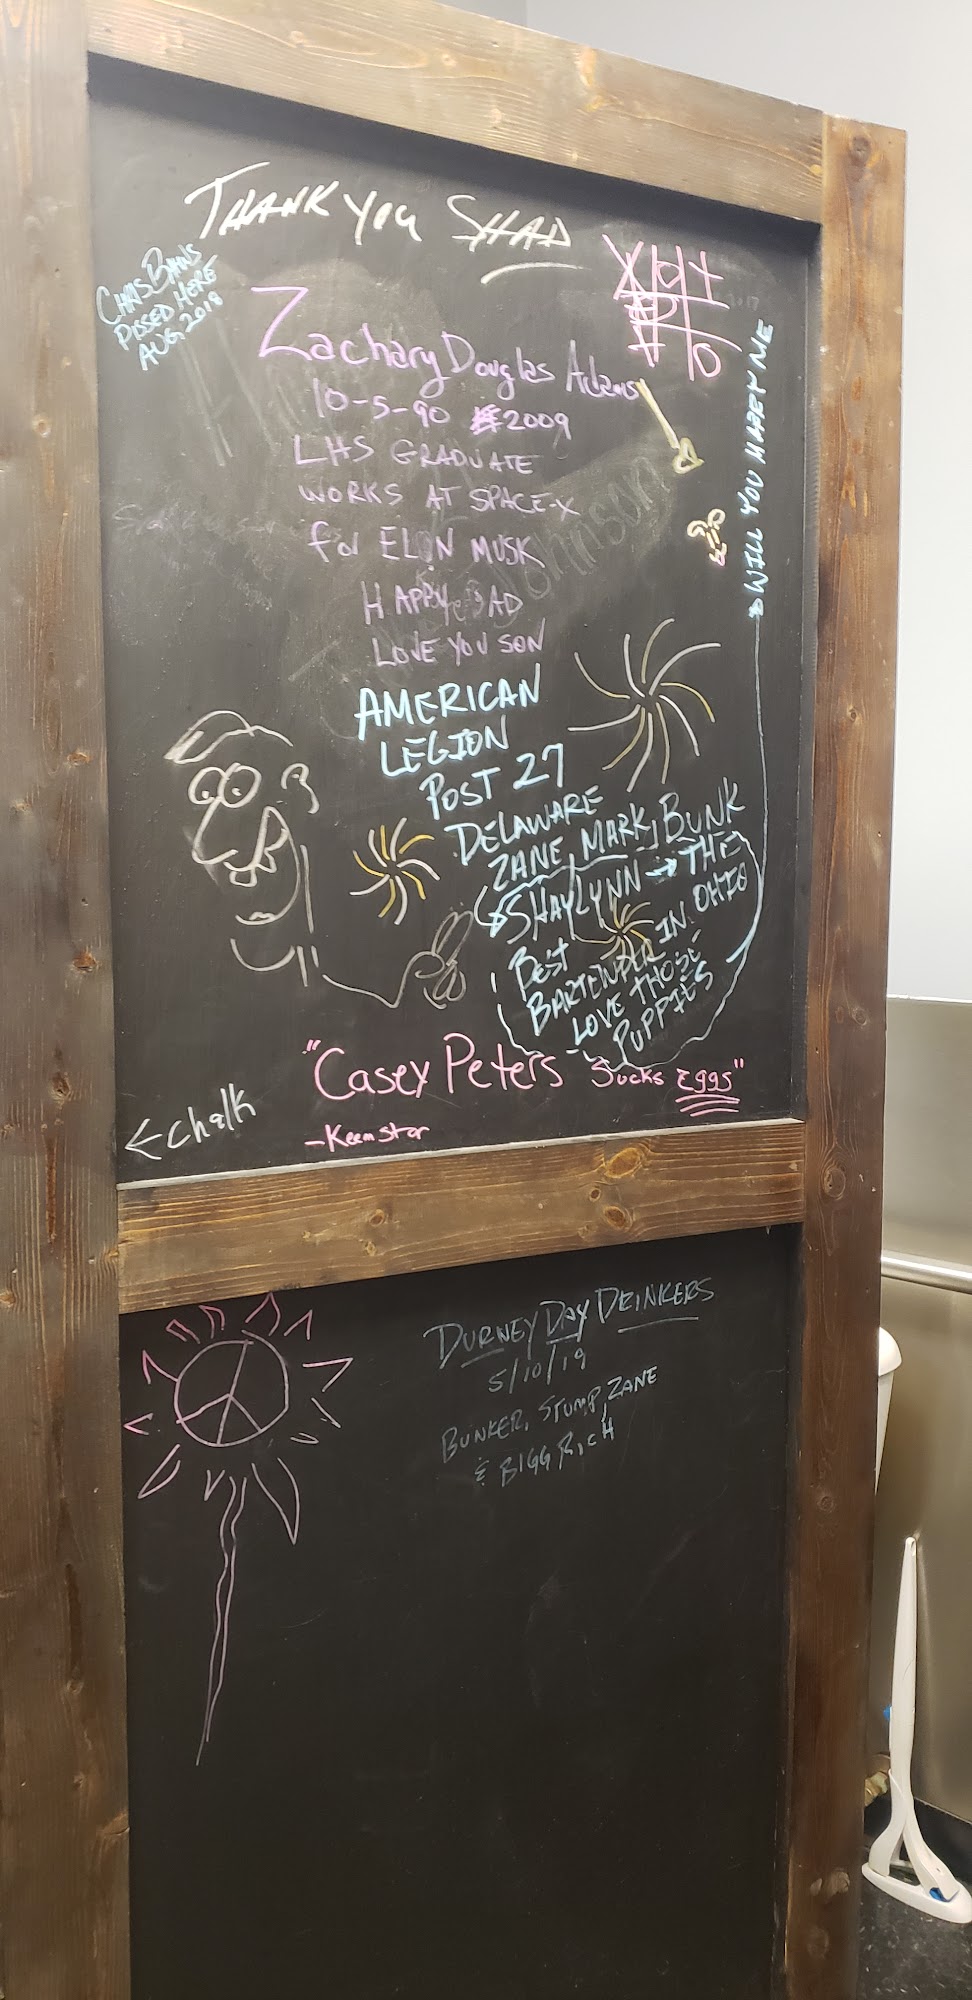 THANK YOU SHAD
CHRIS BAWS
PISSED HERE
AUG 2018
Zachary Douglas Adams
10-5-90 2009
LHS GRADUATE
WORKS AT SPACE-X
for ELON MUSK
HAPPY DAD
LOVE YOU SON
WILL YOU MARRY ME
AMERICAN
LEGION
POST 27
DELAWARE
ZANE, MARK, BUNK
SHAYLYNN → THE
BEST
BARTENDER IN OHIO
LOVE THOSE
PUPPIES
"Casey Peters Sucks Eggs"
-Keemstar
← Chalk
DURNEY DAY DRINKERS
5/10/19
BUNKER, STUMP, ZANE
& BIGG RICH